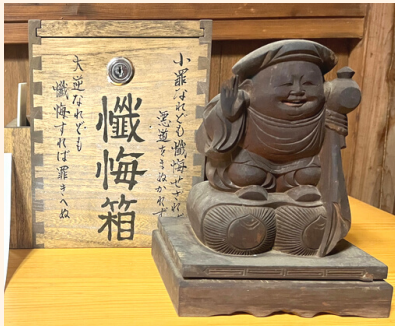 小罪なれども懺悔せざれば
悪道をまぬかれず
懺悔箱
大逆なれども
懺悔すれば罪きへぬ